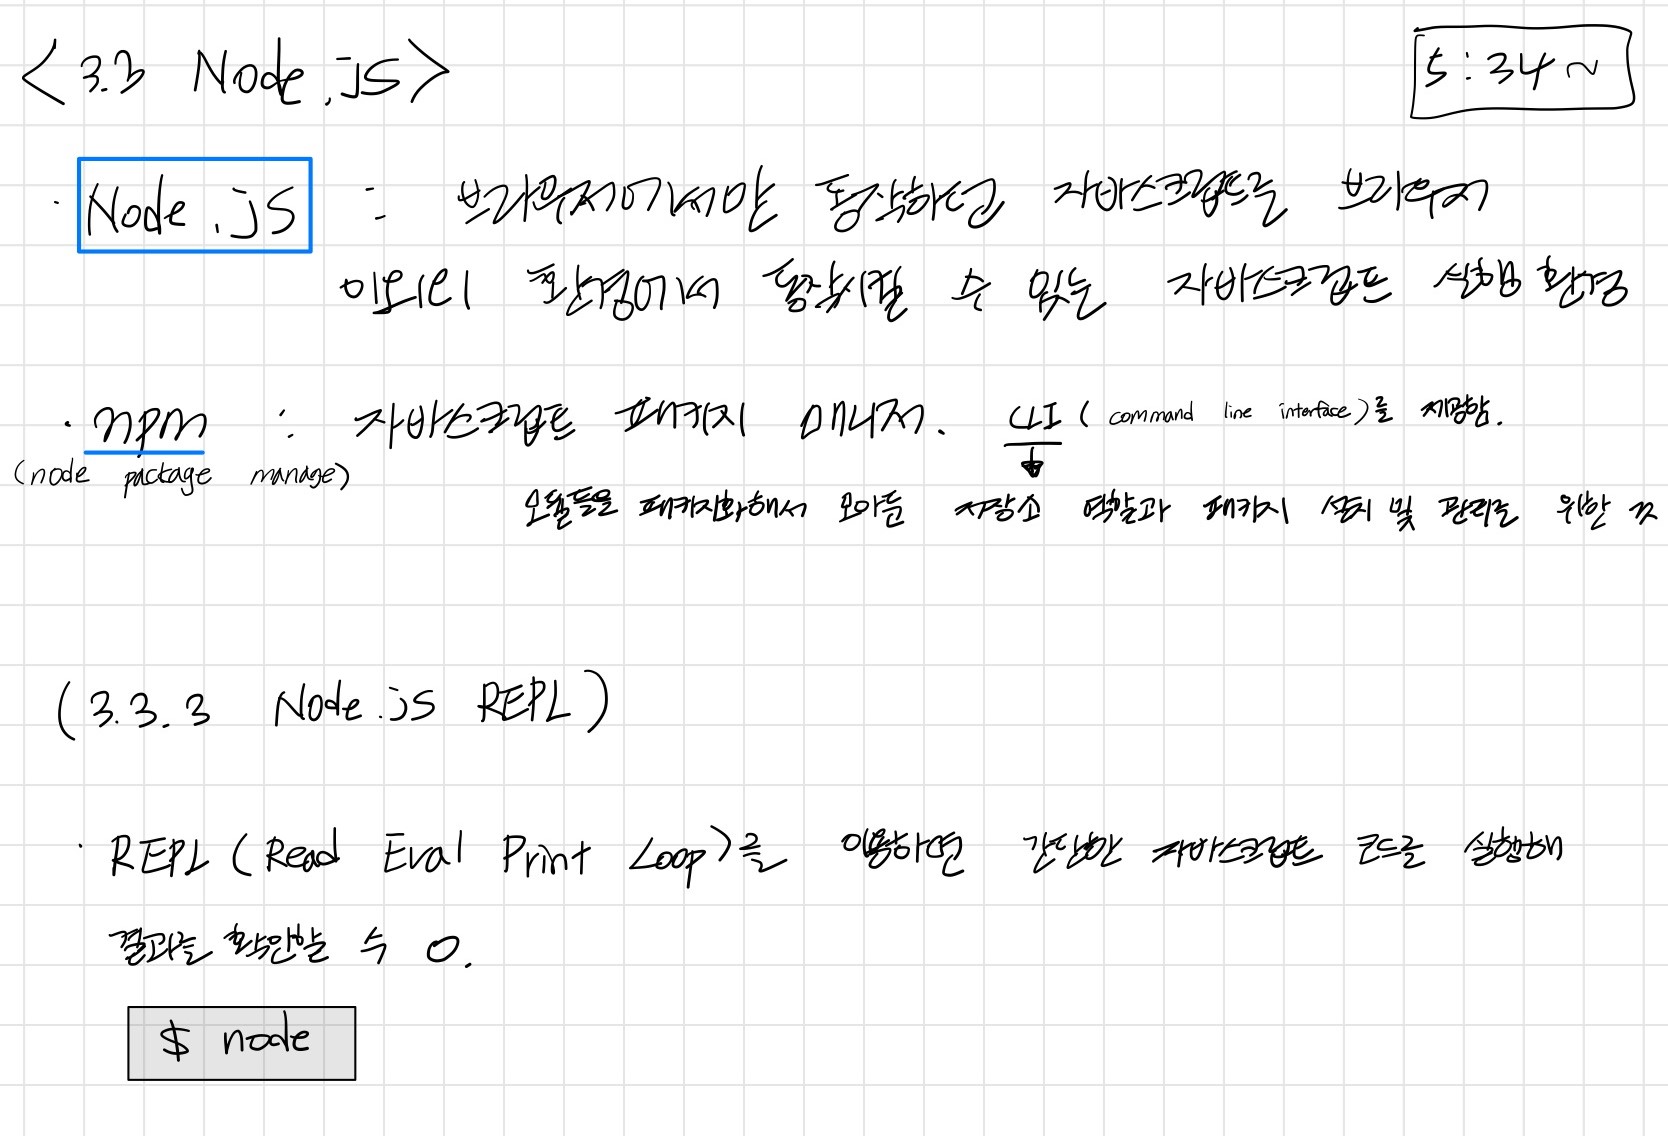 <3.3 Node.js>
5:34~
· Node.js : 브라우저에서만 동작하던 자바스크립트를 브라우저
이외의 환경에서 동작시킬 수 있는 자바스크립트 실행 환경
· npm : 자바스크립트 패키지 매니저. CLI (command line interface)를 제공함.
(node package manage)
모듈들을 패키지화해서 모아둔 저장소 역할과 패키지 설치 및 관리를 위한 것
(3.3.3 Node.js REPL)
· REPL (Read Eval Print Loop)를 이용하면 간단한 자바스크립트 코드를 실행해
결과를 확인할 수 O.
$ node